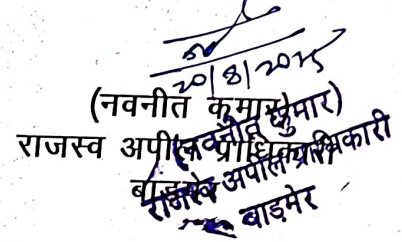 20/8/2025
(नवनीत कुमार)
राजस्व अपील प्राधिकारी
बाड़मेर
(नवनीत कुमार)
राजस्व अपील प्राधिकारी
बाड़मेर